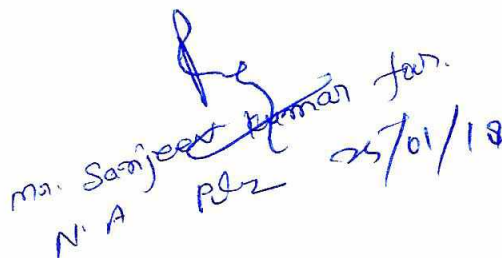 Mr. Sanjeev Kumar for.
N.A Plz 25/01/18